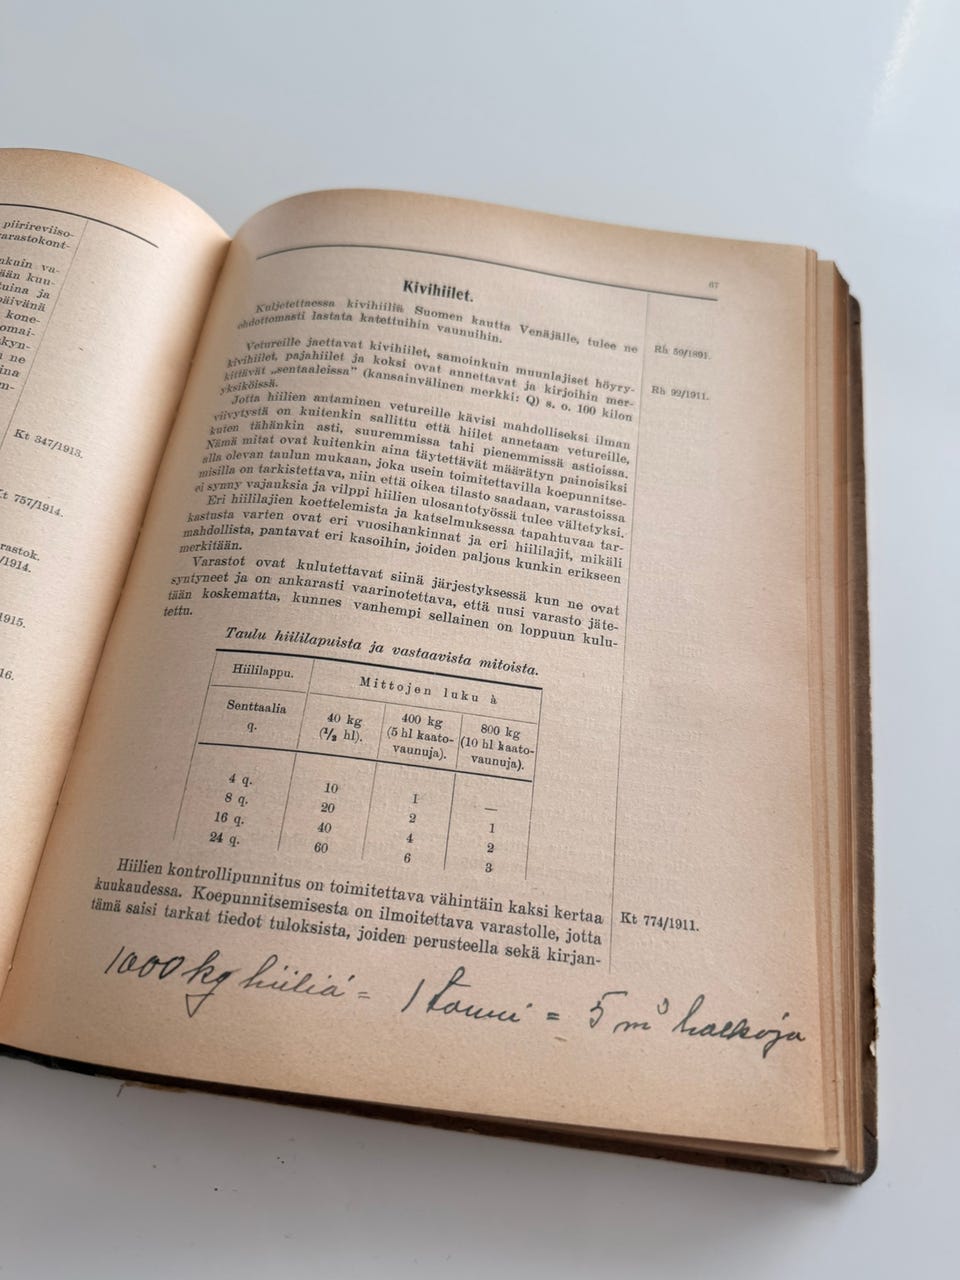 piirireviiso-
varastokont-
nkuin va-
ään kuu-
tuina ja
päivänä
kone-
omai-
kyn-
ne
ina
m-
Kt 347/1913.
Kt 757/1914.
rastok.
/1914.
1915.
16.
67
Kivihiilet.
Kuljetettaessa kivihiiliä Suomen kautta Venäjälle, tulee ne
ehdottomasti lastata katettuihin vaunuihin.
Rh 59/1891.
Vetureille jaettavat kivihiilet, samoinkuin muunlajiset höyry-
kivihiilet, pajahiilet ja koksi ovat annettavat ja kirjoihin mer-
kittävät „sentaaleissa" (kansainvälinen merkki: Q) s. o. 100 kilon
yksiköissä.
Rh 99/1911.
Jotta hiilien antaminen vetureille kävisi mahdolliseksi ilman
viivytystä on kuitenkin sallittu että hiilet annetaan vetureille,
kuten tähänkin asti, suuremmissa tahi pienemmissä astioissa.
Nämä mitat ovat kuitenkin aina täytettävät määrätyn painoisiksi
alla olevan taulun mukaan, joka usein toimitettavilla koepunnitse-
misilla on tarkistettava, niin että oikea tilasto saadaan, varastoissa
ei synny vajauksia ja vilppi hiilien ulosantotyössä tulee vältetyksi.
Eri hiililajien koettelemista ja katselmuksessa tapahtuvaa tar-
kastusta varten ovat eri vuosihankinnat ja eri hiililajit, mikäli
mahdollista, pantavat eri kasoihin, joiden paljous kunkin erikseen
merkitään.
Varastot ovat kulutettavat siinä järjestyksessä kun ne ovat
syntyneet ja on ankarasti vaarinotettava, että uusi varasto jäte-
tään koskematta, kunnes vanhempi sellainen on loppuun kulu-
tettu.
Taulu hiililapuista ja vastaavista mitoista.
Hiililappu.
Mittojen luku à
Senttaalia
q.
40 kg
(½ hl).
400 kg
(5 hl kaato-
vaunuja).
800 kg
(10 hl kaato-
vaunuja).
4 q. 10 1 —
8 q. 20 2 1
16 q. 40 4 2
24 q. 60 6 3
Hiilien kontrollipunnitus on toimitettava vähintäin kaksi kertaa
kuukaudessa. Koepunnitsemisesta on ilmoitettava varastolle, jotta
tämä saisi tarkat tiedot tuloksista, joiden perusteella sekä kirjan-
Kt 774/1911.
1000 kg hiiliä = 1 tonni = 5 m³ halkoja